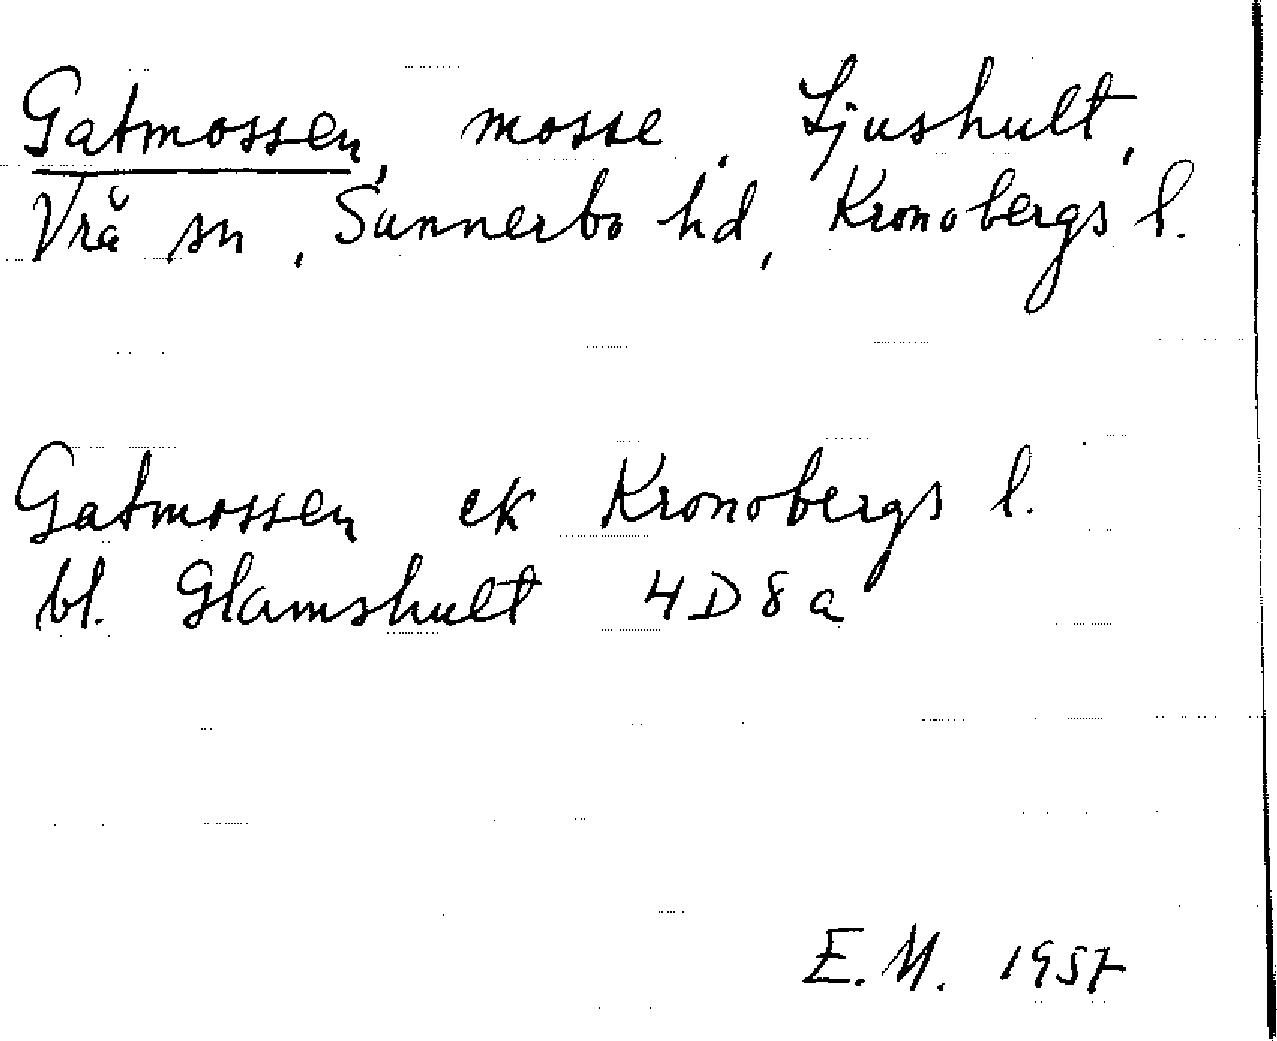 Gatmossen, mosse, Ljushult,
Vrå sn, Sunnerbo hd, Kronobergs l.
Gatmossen ek Kronobergs l.
bl. Glamshult 4D8a
E.M. 1957